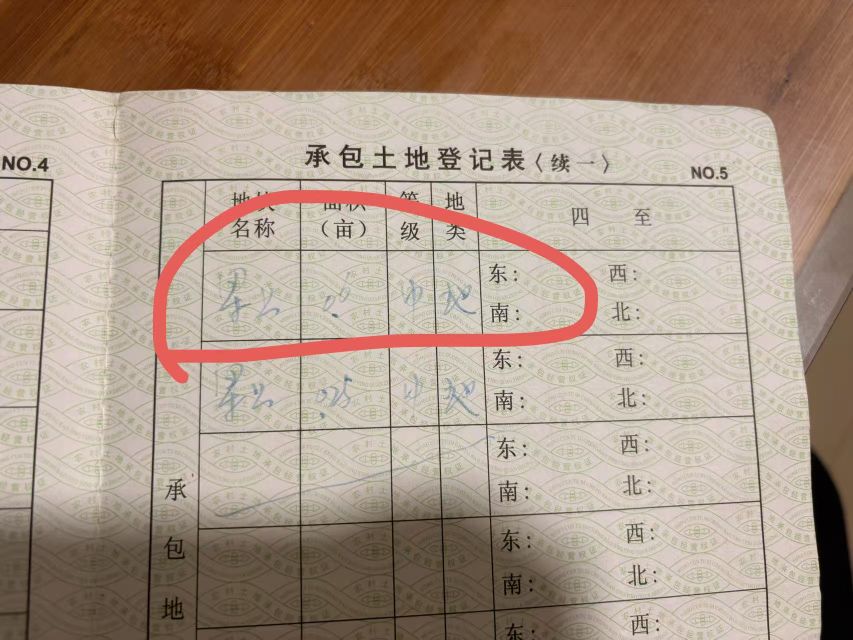 NO.4
承包土地登记表〈续一〉
NO.5
地块名称 面积（亩） 等级 地类 四至
中 地 东： 西：
南： 北：
中 地 东： 西：
南： 北：
东： 西：
南： 北：
东： 西：
南： 北：
东： 西：
承包地